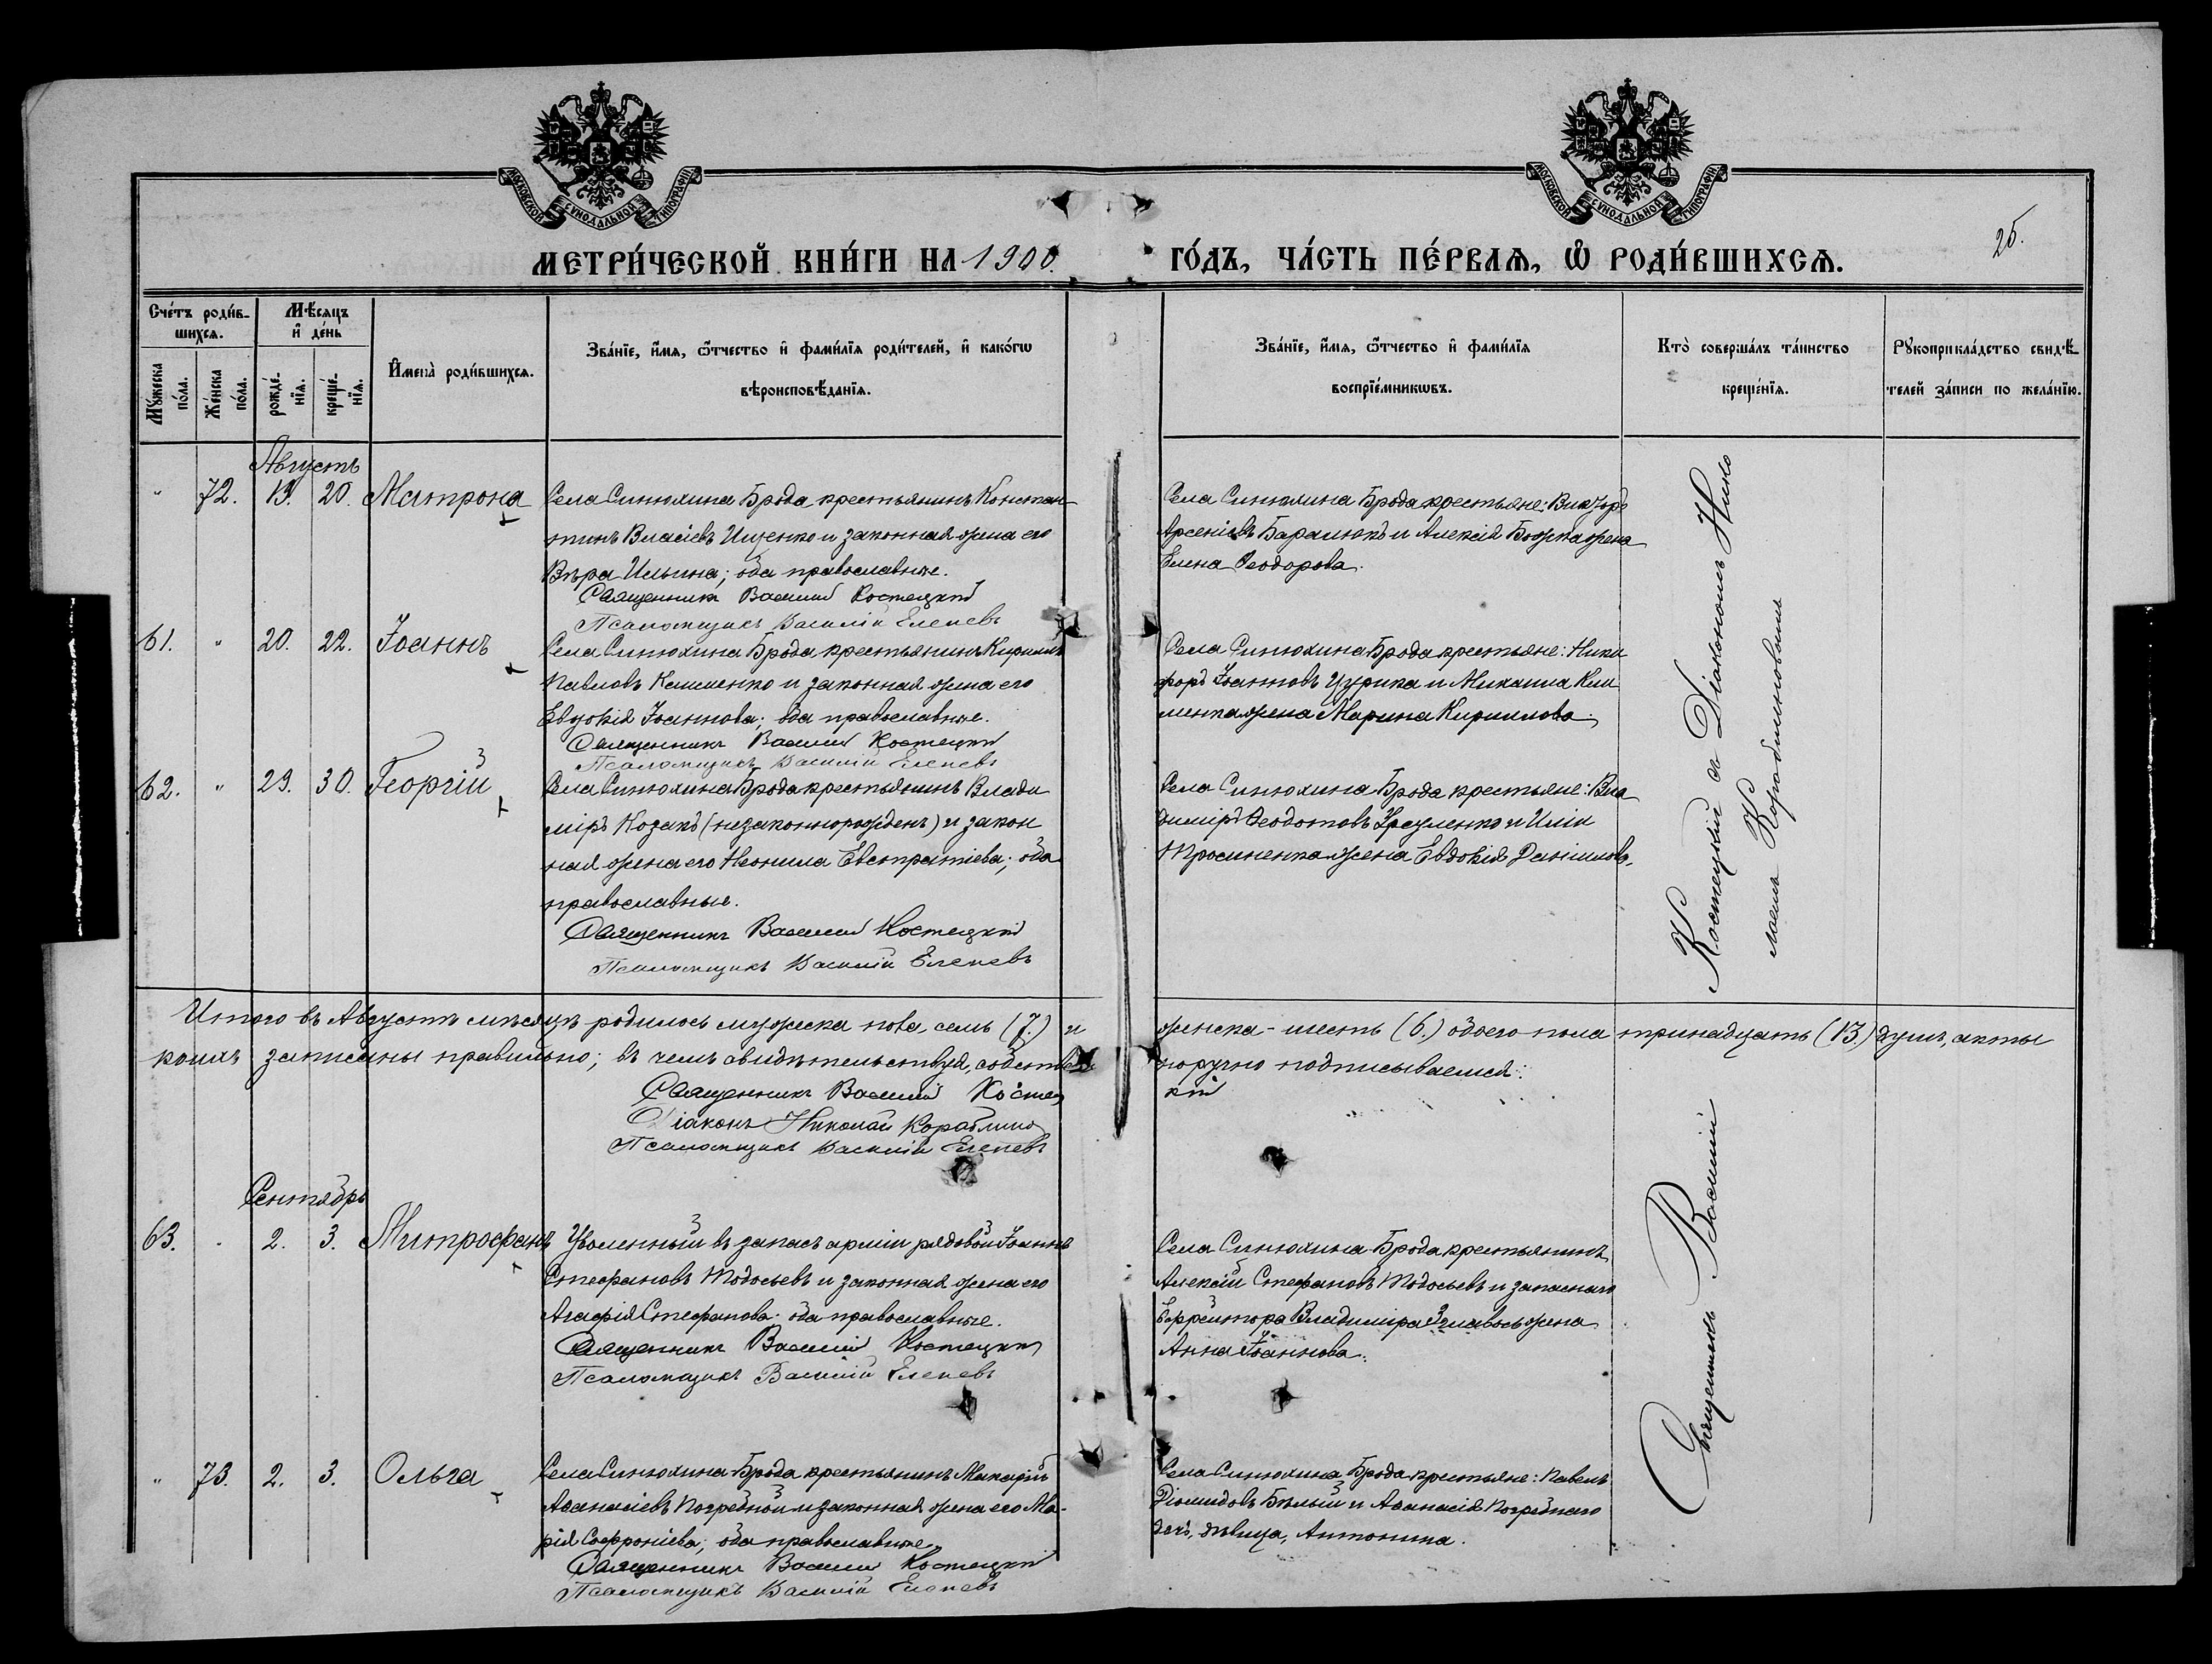 МОСКОВСКОЙ СѴНОДАЛЬНОЙ ТИПОГРАФІИ
МОСКОВСКОЙ СѴНОДАЛЬНОЙ ТИПОГРАФІИ
МЕТРИ́ЧЕСКОЙ КНИ́ГИ НА 1900. ГО́ДЪ, ЧА́СТЬ ПЕ́РВАѦ, Ѡ҆ РОДИ́ВШИХСѦ.
25.
Сче́тъ роди́в-
шихсѧ.
Мꙋ́жеска по́ла.
Же́нска по́ла.
Мѣ́сѧцъ
и҆ де́нь
рожде́-
нїѧ.
креще́-
нїѧ.
И҆мена̀ роди́вшихсѧ.
Зва́нїе, и҆́мѧ, ѻ҆́тчество и҆ фами́лїѧ роди́телей, и҆ како́гѡ
вѣроисповѣ́данїѧ.
Зва́нїе, и҆́мѧ, ѻ҆́тчество и҆ фами́лїѧ
воспрїе́мникѡвъ.
Кто̀ соверша́лъ та́инство
креще́нїѧ.
Рꙋкоприкла́дство свидѣ́-
телей за́писи по жела́нїю.
Августъ
" 72. 19. 20. Матрона
Села Синюхина Брода крестьянинъ Констан
тинъ Власіевъ Ищенко и законная жена его
Вѣра Ильина; оба православные.
Священникъ Василій Костецкій
Псаломщикъ Василій Елепевъ
Села Синюхина Брода крестьяне: Викторъ
Арсеніевъ Баралюкъ и Алексія Божка жена
Елена Ѳеодорова.
61. " 20. 22. Іоаннъ
Села Синюхина Брода крестьянинъ Кириллъ
Павловъ Клименко и законная жена его
Евдокія Іоаннова; оба православные.
Священникъ Василій Костецкій
Псаломщикъ Василій Елепевъ
Села Синюхина Брода крестьяне: Ники
форъ Іоанновъ Цурика и Михаила Кли
менка жена Марина Кириллова.
62. " 29. 30. Георгій
Села Синюхина Брода крестьянинъ Влади
міръ Козакъ (незаконнорожденъ) и закон
ная жена его Неонила Евстратіева; оба
православные.
Священникъ Василій Костецкій
Псаломщикъ Василій Елепевъ
Села Синюхина Брода крестьяне: Вла
диміръ Ѳеодотовъ и Иліи
жена Евдокія Даніилова.
Итого въ Августѣ мѣсяцѣ родилось мужеска пола семь (7.) и женска - шесть (6.) обоего пола тринадцать (13.) душъ, акты
коихъ записаны правильно; въ чемъ свидѣтельствуя, собствен норучно подписываемся:
Священникъ Василій Костец кій
Діаконъ Николай Кораблино
Псаломщикъ Василій Елепевъ
Сентябрь
63. " 2. 3. Митрофанъ
Уволенный въ запасъ арміи рядовой Іоаннъ
Стефановъ Тодосьевъ и законная жена его
Агафія Стефанова; оба православные.
Священникъ Василій Костецкій
Псаломщикъ Василій Елепевъ
Села Синюхина Брода крестьянинъ
Алексій Стефановъ Тодосьевъ и запаснаго
Ефрейтора Владиміра жена
Анна Іоаннова.
" 73. 2. 3. Ольга
Села Синюхина Брода крестьянинъ Макарій
Аѳанасіевъ Погребной и законная жена его Ма-
рія Софроніева; оба православные.
Священникъ Василій Костецкій
Псаломщикъ Василій Елепевъ
Села Синюхина Брода крестьяне: Павелъ
Діомидовъ Бѣлый и Аѳанасія Погребнаго
дочь, дѣвица, Антонина.
Священникъ Василій Костецкій съ Діакономъ Нико
лаемъ Кораблиновымъ